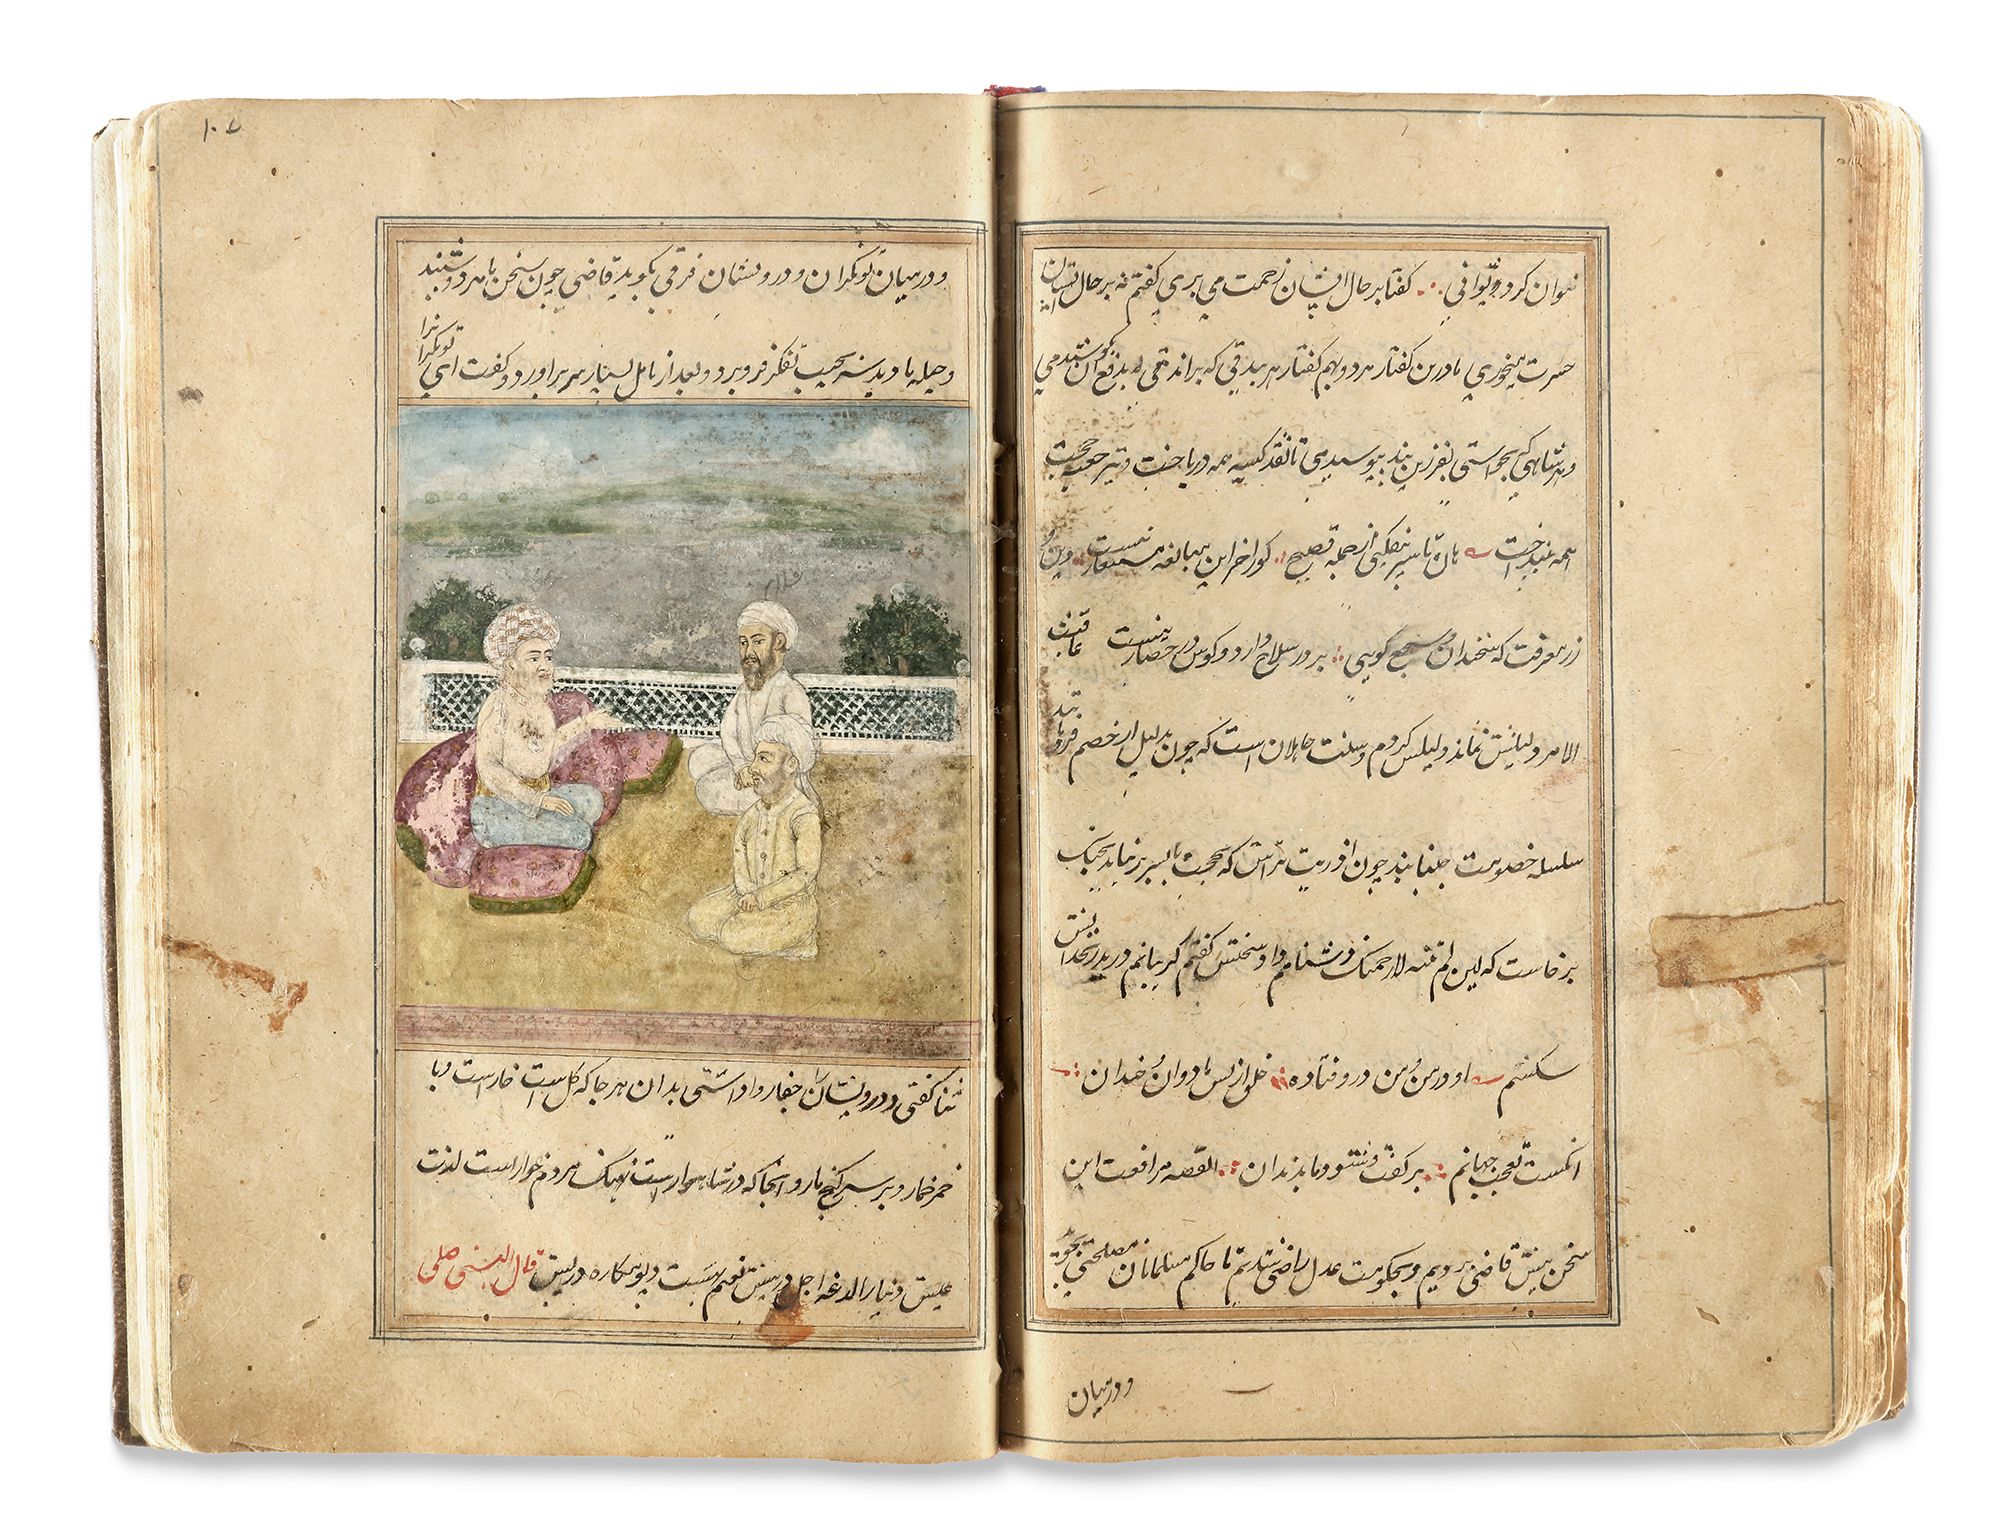 نتوان کرد و توانی گفتا بر حال ایشان زحمت می بری گفتم نه بر حال ایشان
حسرت میخوری ما درین گفتار هر دو بهم گفتار هر بیدقی که براندی بدفع آن بکوشیدمی
و هر شاهی که بخواستی بفرزین بپوشیدمی تا نقد کیسه همه درباخت و تیر جعبه حجت
همه بینداخت هان تا سپر نیفکنی از حمله فصیح کورا جز این مبالغه مستعار نیست دین ورز
و معرفت که سخندان سجع گوی بر در سلاح دارد و کس در حصار نیست عاقبت
الامر دلیلش نماند ذلیلش کردم و سنت جاهلان است که چون بدلیل از خصم فرو مانند
سلسله خصومت جنبانند چون آذر بت تراش که بحجت با پسر بر نیامد بجنگ
برخاست که لئن لم تنته لارجمنک دشنامم داد سخطش گفتم گریبانم درید زنخدانش
شکستم او در من و من درو فتاده خلق از پس ما دوان و خندان
انگشت تعجب جهانی بر گفت و شنود ما بدندان القصه مرافعت این
سخن پیش قاضی بردیم و بحکومت عدل راضی شدیم تا حاکم مسلمانان مصلحتی بجوید
و درمیان
۱۰۷
و درمیان توانگران و درویشان فرقی بگوید قاضی چون سخن ما هر دو شنید
و حیله ما دید سر بجیب تفکر فرو برد و بعد از تامل بسیار سر بر آورد و گفت ای توانگرانرا
ثنا گفتی و درویشان را جفا روا داشتی بدان هر جا که گل است خار است و با
خمر خمار و بر سر گنج مار و آنجا که در شاهوار است نهنک مردم خوار است لذت
عیش دنیا را لدغه اجل در پیش نعیم بهشت دیوار مکاره در پیش قال النبی صلی